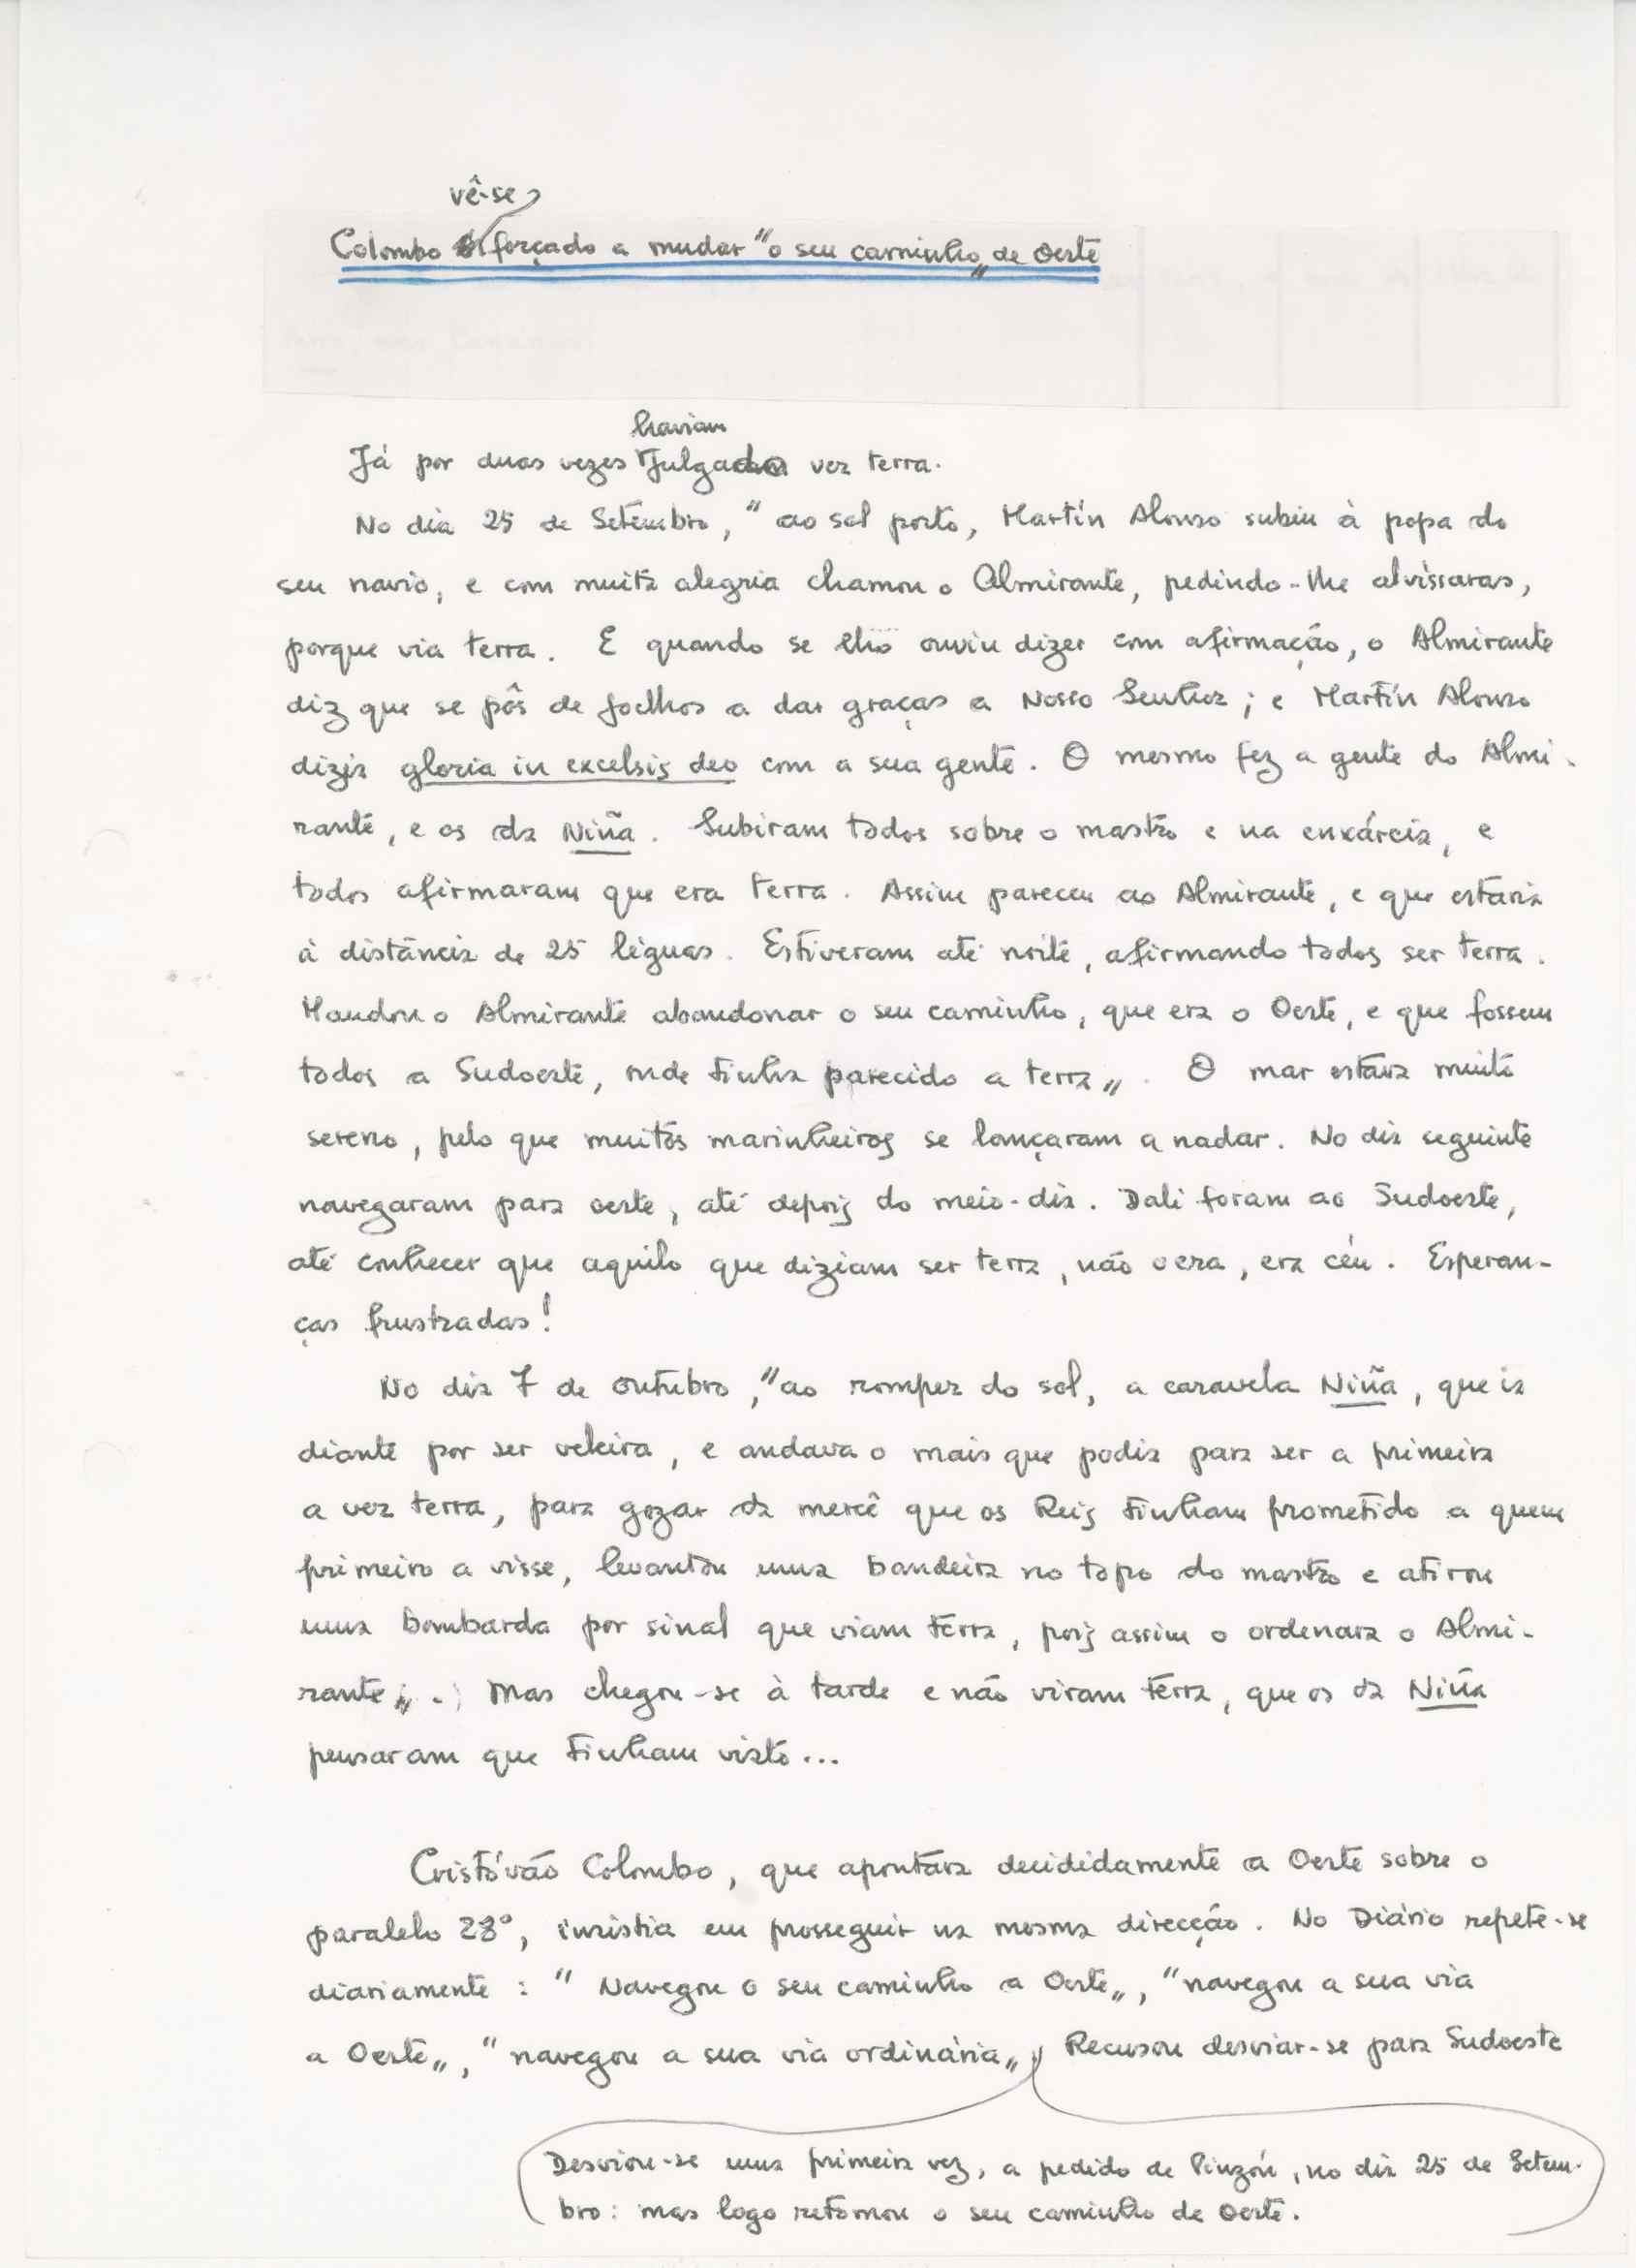 vê-se
Colombo forçado a mudar "o seu caminho" de Oeste
haviam
Já por duas vezes julgado ver terra.
No dia 25 de Setembro, "ao sol posto, Martín Alonso subiu à popa do
seu navio, e com muita alegria chamou o Almirante, pedindo-lhe alvíssaras,
porque via terra. E quando se lho ouviu dizer com afirmação, o Almirante
diz que se pôs de joelhos a dar graças a Nosso Senhor; e Martín Alonso
dizia gloria in excelsis deo com a sua gente. O mesmo fez a gente do Almi-
rante, e os da Niña. Subiram todos sobre o mastro e na enxárcia, e
todos afirmaram que era terra. Assim pareceu ao Almirante, e que estaria
à distância de 25 léguas. Estiveram até noite, afirmando todos ser terra.
Mandou o Almirante abandonar o seu caminho, que era o Oeste, e que fossem
todos a Sudoeste, onde tinha parecido a terra". O mar estava muito
sereno, pelo que muitos marinheiros se lançaram a nadar. No dia seguinte
navegaram para oeste, até depois do meio-dia. Dali foram ao Sudoeste,
até conhecer que aquilo que diziam ser terra, não o era, era céu. Esperan-
ças frustradas!
No dia 7 de Outubro, "ao romper do sol, a caravela Niña, que ia
diante por ser veleira, e andava o mais que podia para ser a primeira
a ver terra, para gozar da mercê que os Reis tinham prometido a quem
primeiro a visse, levantou uma bandeira no topo do mastro e atirou
uma bombarda por sinal que viam terra, pois assim o ordenara o Almi-
rante". Mas chegou-se à tarde e não viram terra, que os da Niña
pensaram que tinham visto...
Cristóvão Colombo, que apontara decididamente a Oeste sobre o
paralelo 28º, insistia em prosseguir na mesma direcção. No Diário repete-se
diariamente: "Navegou o seu caminho a Oeste", "navegou a sua via
a Oeste", "navegou a sua via ordinária". Recusou desviar-se para Sudoeste
Desviou-se uma primeira vez, a pedido de Pinzón, no dia 25 de Setem-
bro: mas logo retomou o seu caminho de Oeste.